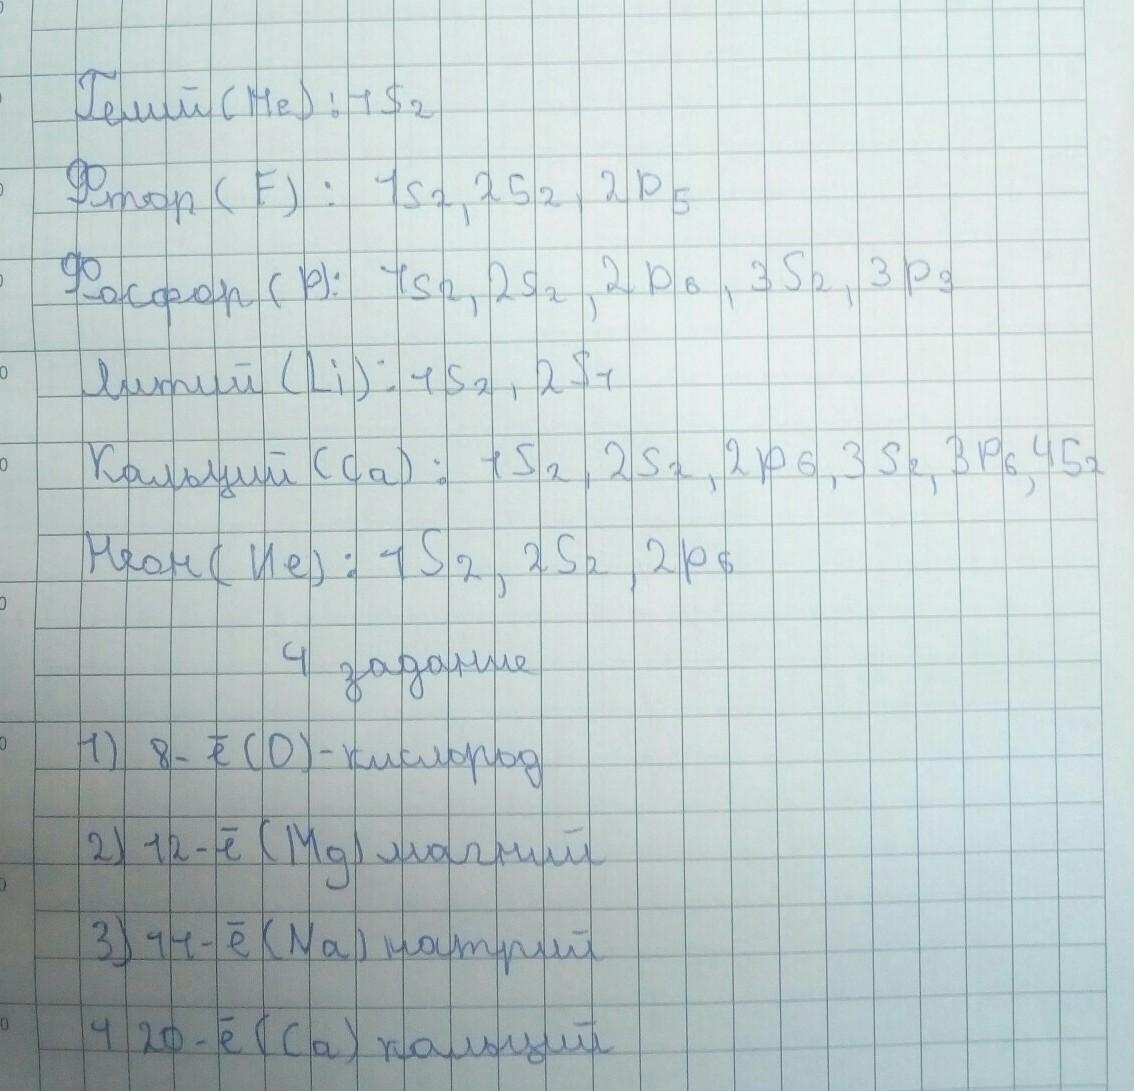 Гелий (He) : 1S2
Фтор (F) : 1S2, 2S2, 2p5
Фосфор (P): 1S2, 2S2, 2p6, 3S2, 3p3
Литий (Li): 1S2, 2S1
Кальций (Ca) : 1S2, 2S2, 2p6, 3S2, 3p6, 4S2
Неон (Ne) : 1S2, 2S2, 2p6
4 задание
1) 8- ē (O) - кислород
2) 12- ē (Mg) магний
3) 11- ē (Na) натрий
4 20- ē (Ca) кальций